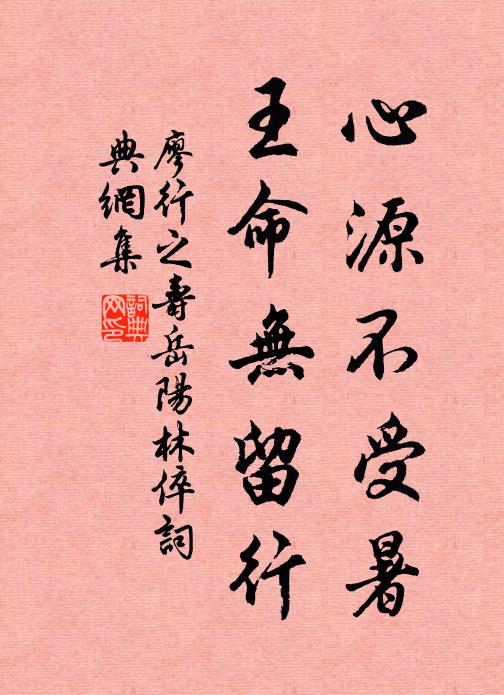 心源不受暑
王命無留行
廖行之壽岳陽林倅詞
典網集
詞典网印